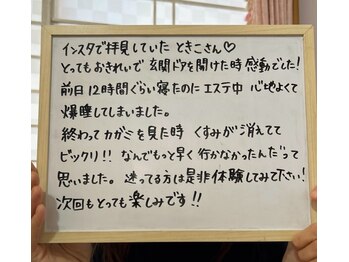 インスタで拝見していた ときこさん♡
とってもおきれいで 玄関ドアを開けた時 感動でした!
前日12時間ぐらい寝たのに エステ中 心地よくて
爆睡してしまいました。
終わってカガミを見た時 くすみが消えてて
ビックリ!! なんでもっと早く行かなかったんだって
思いました。 迷ってる方は是非体験してみて下さい!
次回もとっても楽しみです!!